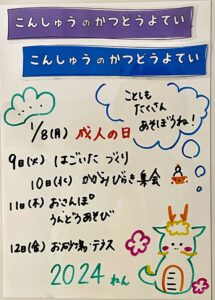 こんしゅうのかつどうよてい
こんしゅうのかつどうよてい
ことしも
たくさん
あそぼうね!
1/8(月) 成人の日
9日(火) はごいたづくり
10日(水) かがみびらき集会
11日(木) おさんぽ
うんどうあそび
12日(金)
2024 ねん